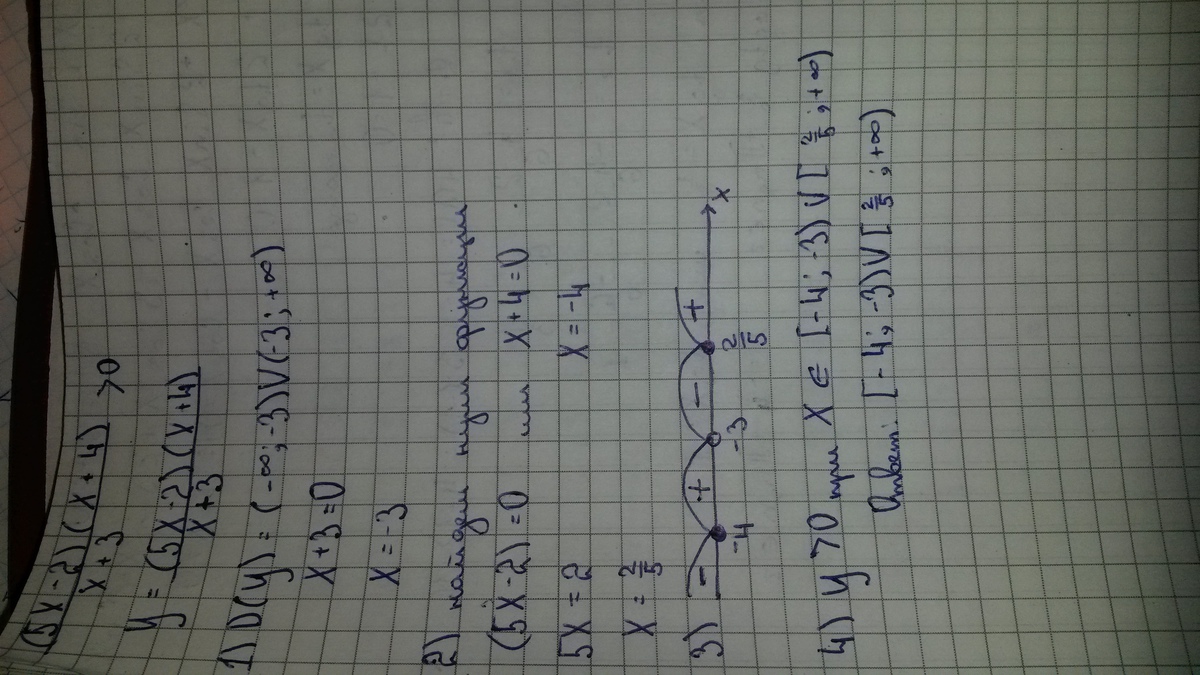 (5x-2)(x+4)/x+3 >0
y = (5x-2)(x+4)/x+3
1) D(y) = (-∞;-3)V(-3;+∞)
x+3=0
x=-3
2) найдем нули функции
(5x-2)=0 или x+4=0
5x=2 x=-4
x=2/5
3) - + - + x
-4 -3 2/5
4) y >0 при x ∈ [-4;-3)V[2/5;+∞)
Ответ: [-4;-3)V[2/5;+∞)